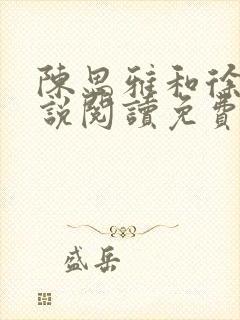 陳思雅和徐
說閱讀免費
盛岳